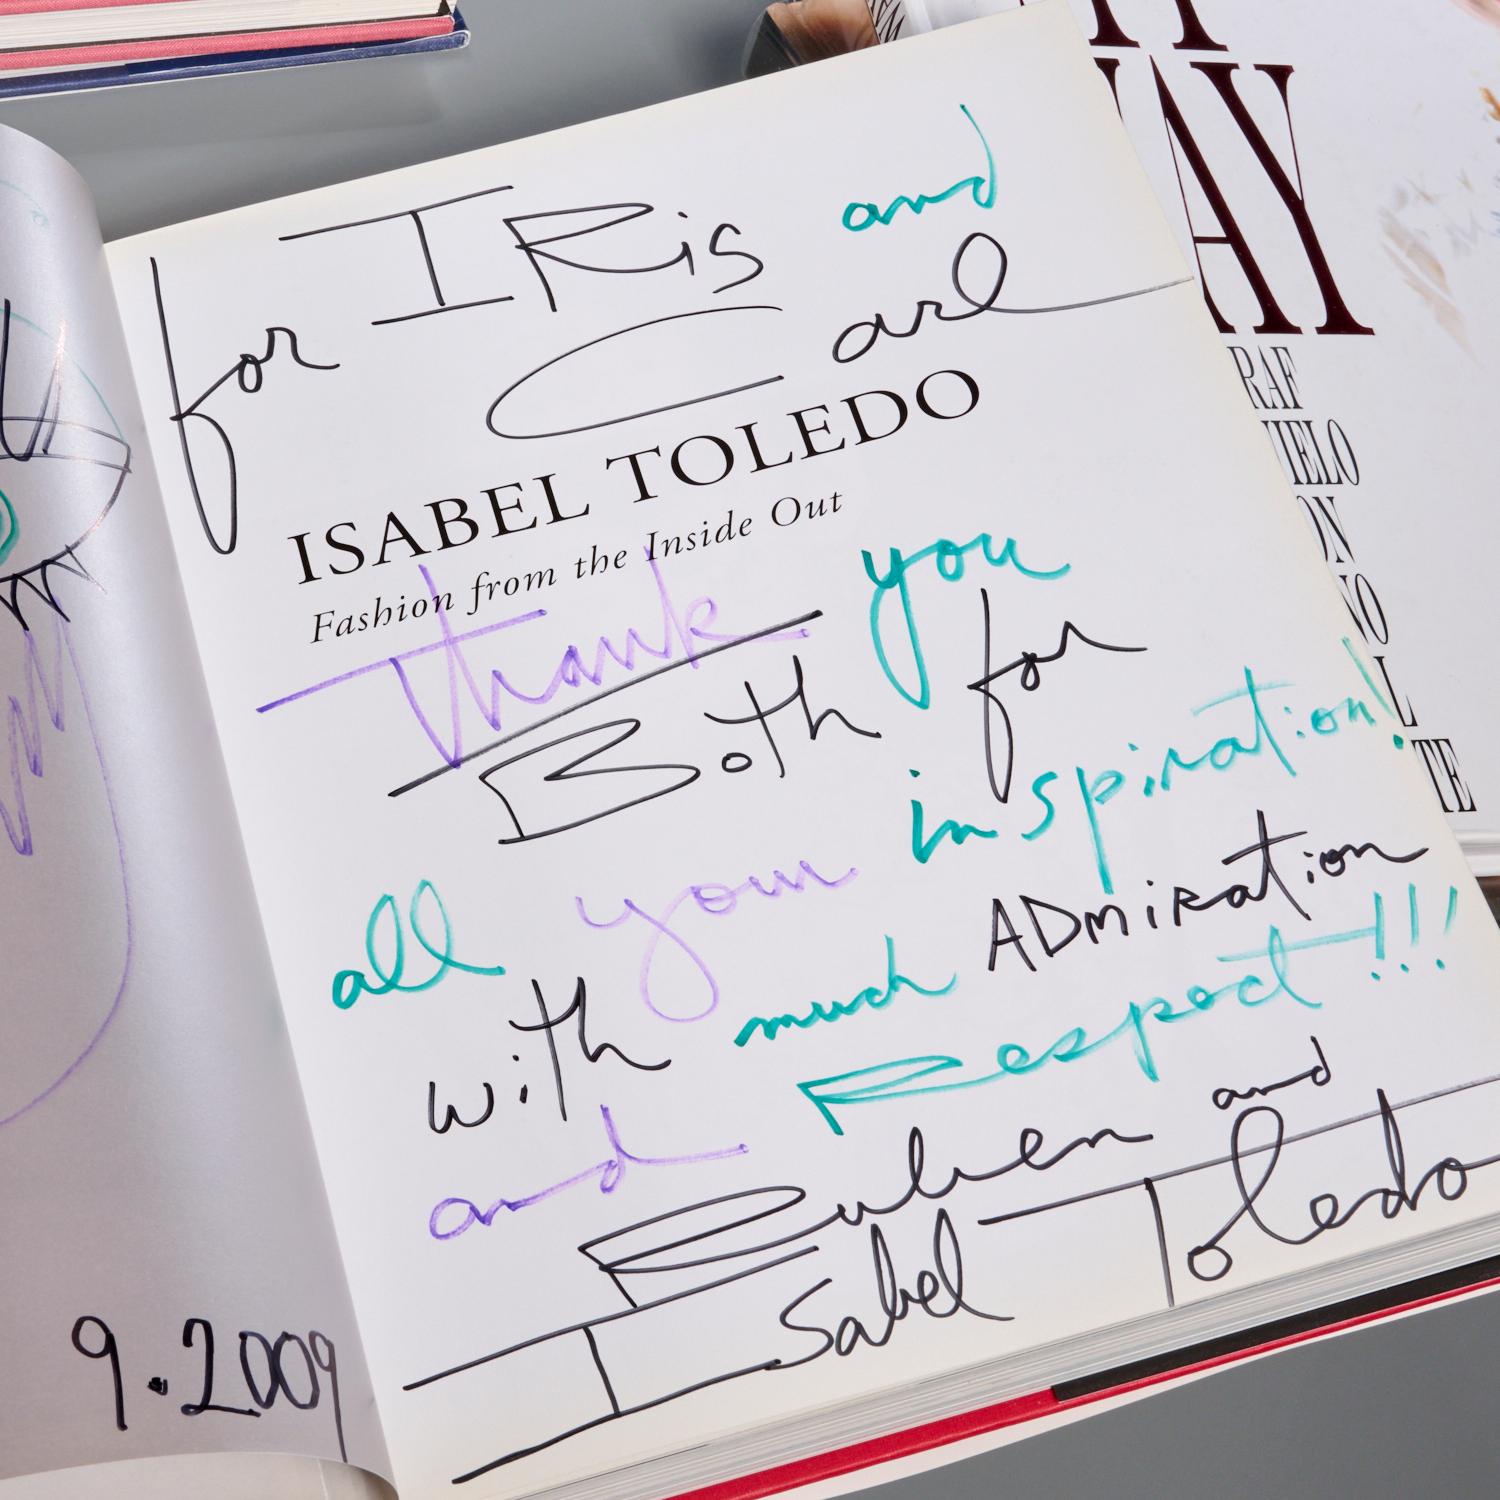 for IRis and
Carl
ISABEL TOLEDO
Fashion from the Inside Out
thank you
Both for
all your inspiration!
with much ADmiRation
and Respect!!!
Ruben and
Isabel Toledo
9.2009
WAY
RAF
IELO
ON
NO
L
TE